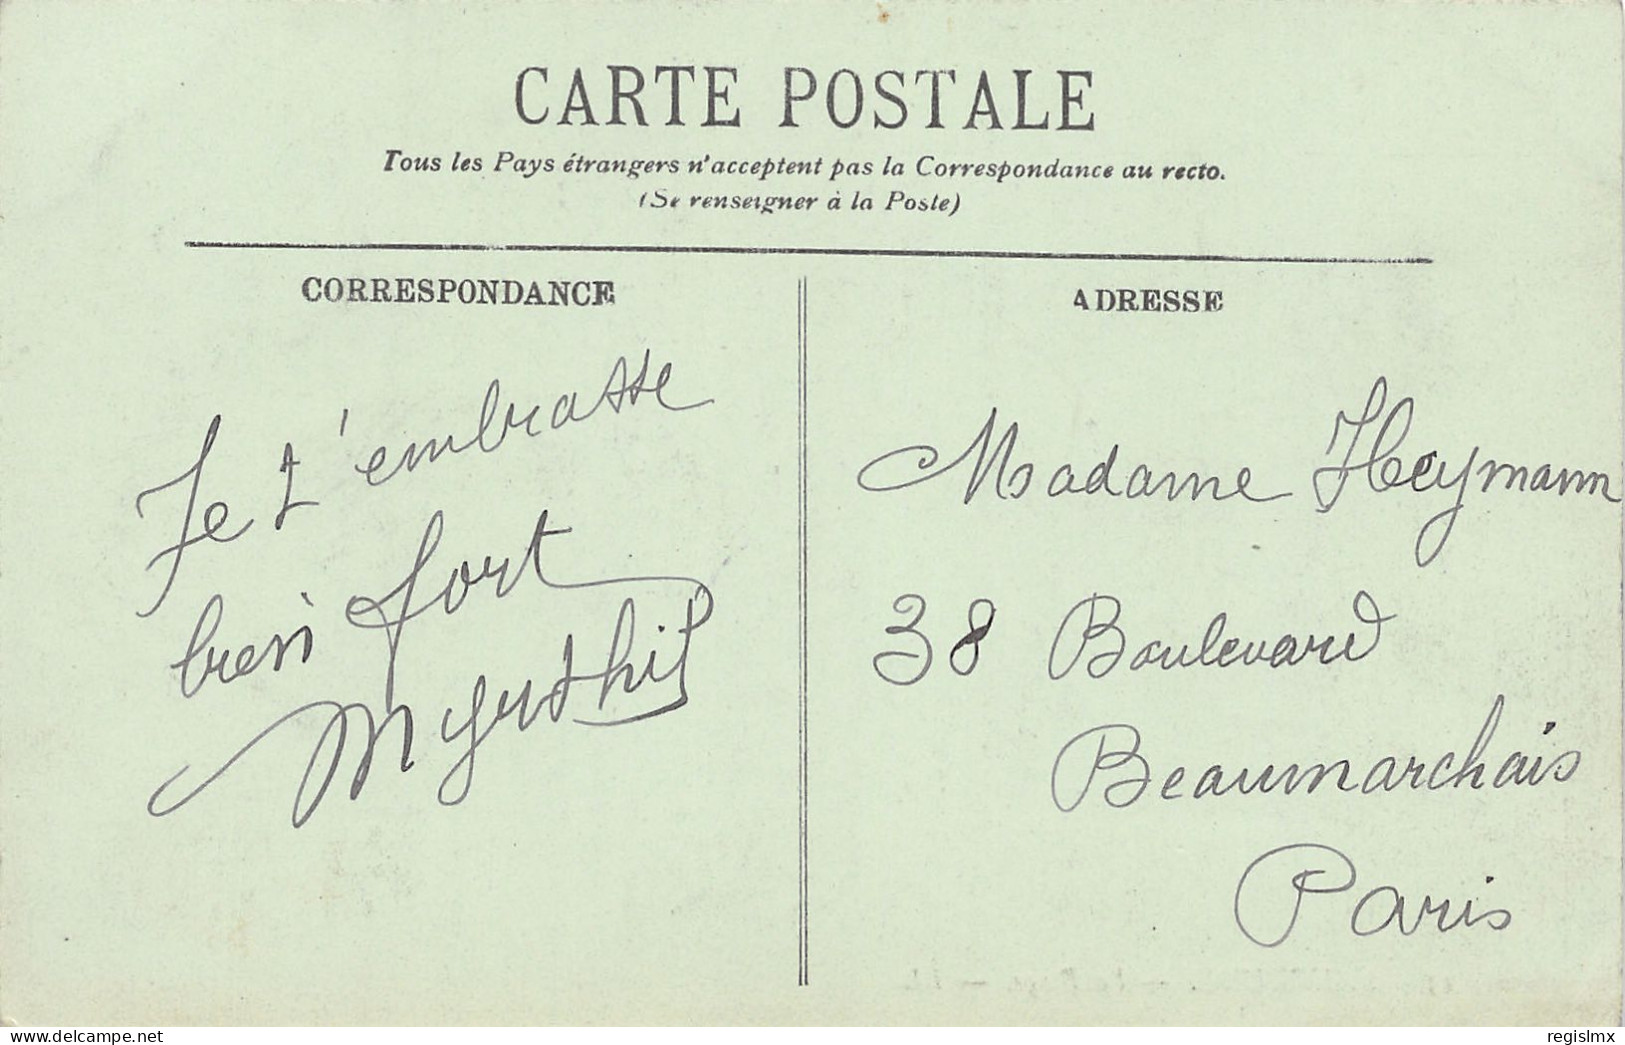 CARTE POSTALE
Tous les Pays étrangers n'acceptent pas la Correspondance au recto.
(Se renseigner à la Poste)
CORRESPONDANCE
Je t'embrasse
bien fort
ADRESSE
Madame Heymann
38 Boulevard
Beaumarchais
Paris
delcampe.net
regislmx